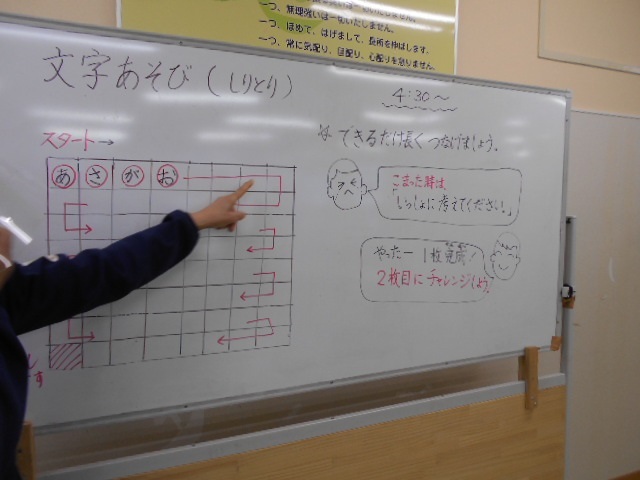 一つ、無理強いは一切いたしません。
一つ、ほめて、はげまして、長所を伸ばします。
一つ、常に気配り、目配り、心配りを怠りません。
文字あそび(しりとり)
4:30～
スタート→
☆できるだけ長くつなげましょう.
あ さ が お
こまった時は、
「いっしょに考えてください。」
やったー 1枚完成!
2枚目にチャレンジしよう!